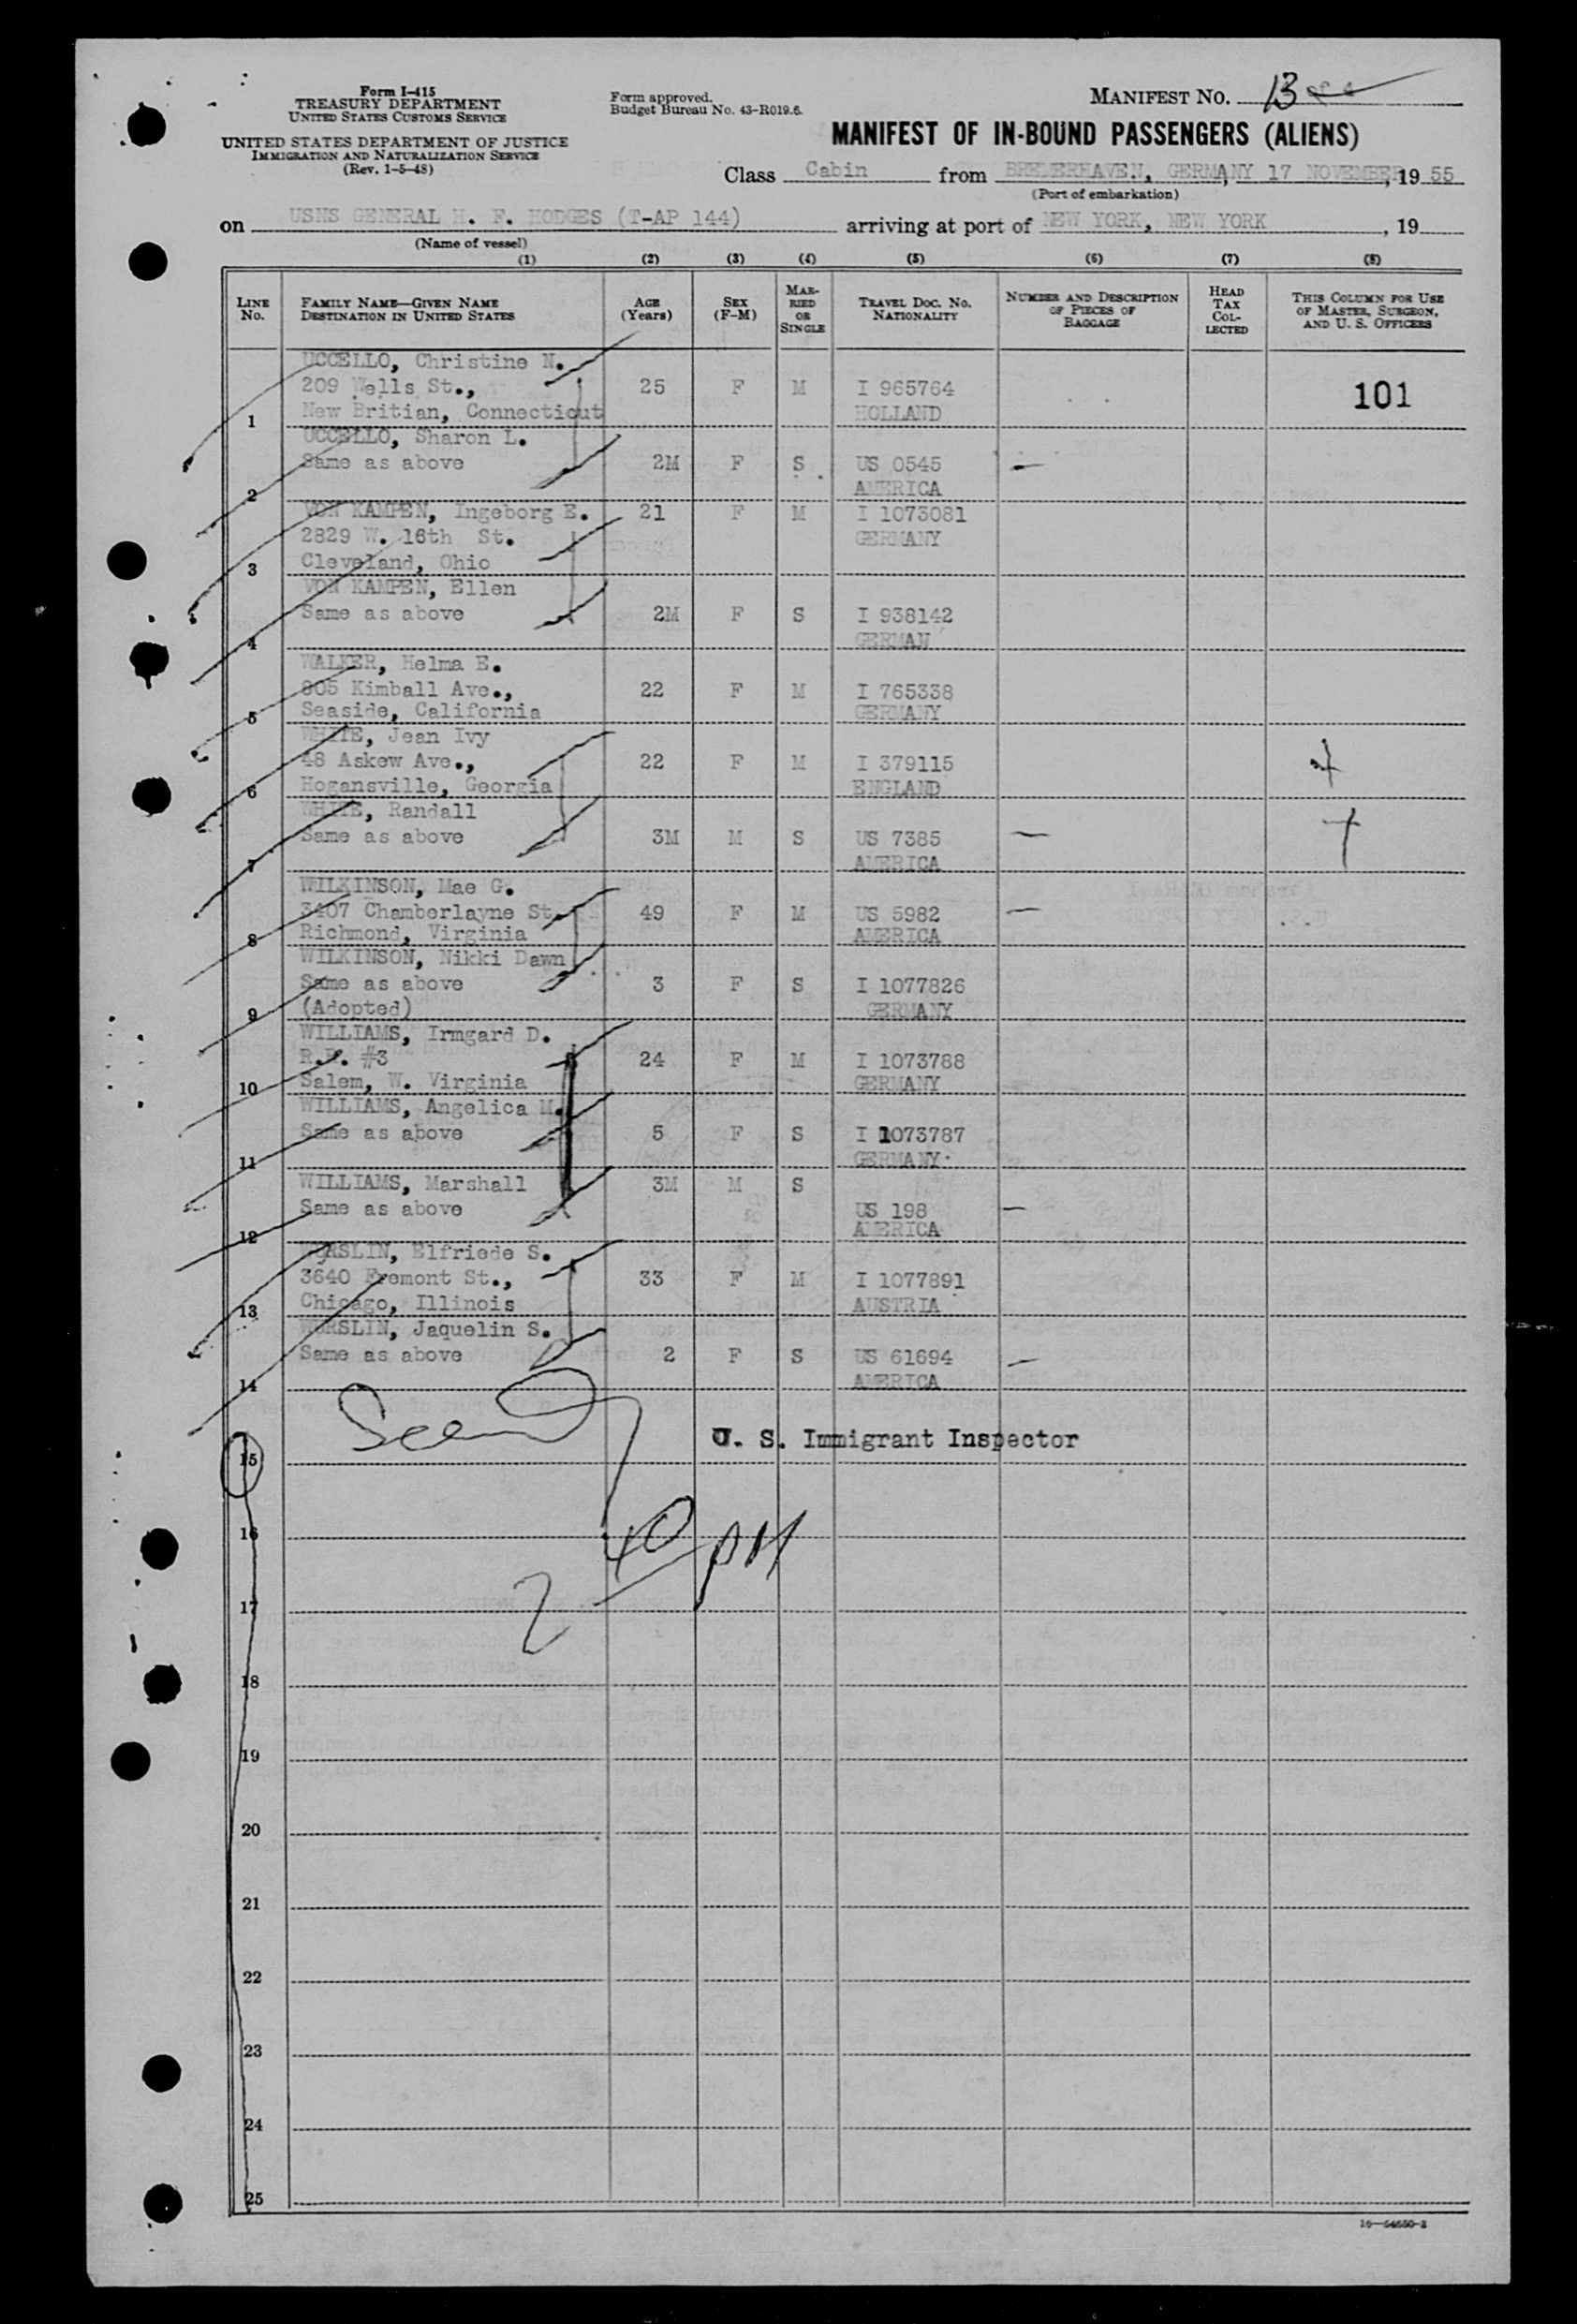 Form I-415
TREASURY DEPARTMENT
UNITED STATES CUSTOMS SERVICE
UNITED STATES DEPARTMENT OF JUSTICE
IMMIGRATION AND NATURALIZATION SERVICE
(Rev. 1-5-48)
Form approved.
Budget Bureau No. 43-R019.6.
MANIFEST NO. 13
MANIFEST OF IN-BOUND PASSENGERS (ALIENS)
Class Cabin from BREMERHAVEN, GERMANY 17 NOVEMBER, 19 55
(Port of embarkation)
on USNS GENERAL H. F. HODGES (T-AP 144) arriving at port of NEW YORK, NEW YORK, 19
(Name of vessel)
(1) (2) (3) (4) (5) (6) (7) (8)
LINE No.
FAMILY NAME—GIVEN NAME
DESTINATION IN UNITED STATES
AGE (Years)
SEX (F-M)
MARRIED OR SINGLE
TRAVEL DOC. NO. NATIONALITY
NUMBER AND DESCRIPTION OF PIECES OF BAGGAGE
HEAD TAX COLLECTED
THIS COLUMN FOR USE OF MASTER, SURGEON, AND U. S. OFFICERS
UCCELLO, Christine N.
209 Wells St., 25 F M I 965764 101
1 New Britian, Connecticut HOLLAND
UCCELLO, Sharon L.
Same as above 2M F S US 0545
2 AMERICA
VON KAMPEN, Ingeborg E. 21 F M I 1073081
2829 W. 16th St. GERMANY
3 Cleveland, Ohio
VON KAMPEN, Ellen
Same as above 2M F S I 938142
4 GERMAN
WALKER, Helma E.
805 Kimball Ave., 22 F M I 765338
5 Seaside, California GERMANY
WHITE, Jean Ivy
48 Askew Ave., 22 F M I 379115
6 Hogansville, Georgia ENGLAND
WHITE, Randall
Same as above 3M M S US 7385
7 AMERICA
WILKINSON, Mae G.
3407 Chamberlayne St. 49 F M US 5982
8 Richmond, Virginia AMERICA
WILKINSON, Nikki Dawn
Same as above 3 F S I 1077826
9 (Adopted) GERMANY
WILLIAMS, Irmgard D.
R.D. #3 24 F M I 1073788
10 Salem, W. Virginia GERMANY
WILLIAMS, Angelica M.
Same as above 5 F S I 1073787
11 GERMANY
WILLIAMS, Marshall 3M M S
Same as above US 198
12 AMERICA
WORSLIN, Elfriede S.
3640 Fremont St., 33 F M I 1077891
13 Chicago, Illinois AUSTRIA
WORSLIN, Jaquelin S.
Same as above 2 F S US 61694
14 AMERICA
U. S. Immigrant Inspector
15
16
2 40 PM
17
18
19
20
21
22
23
24
25